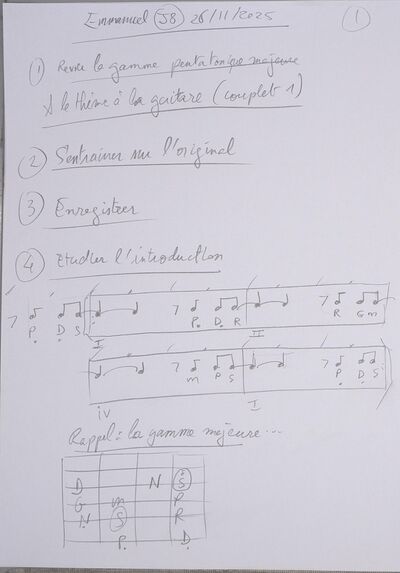 Emmanuel (J8) 26/11/2025 (1)
(1) Revoir la gamme pentatonique majeure
& le thème à la guitare (couplet 1)
(2) S'entrainer sur l'original
(3) Enregistrer
(4) Etudier l'introduction
P. D. S P. D. R R G m
I II
m P S P. D. S
iv I
Rappel : la gamme majeure...
D N S
G m P
N S R
P. D.